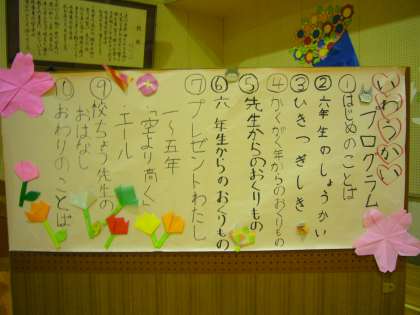 いわうかい
プログラム
①はじめのことば
②六年生のしょうかい
③ひきつぎしき
④かくがく年からのおくりもの
⑤先生からのおくりもの
⑥六年生からのおくりもの
⑦プレゼントわたし
一～五年
「空より高く」
エール
⑨校ちょう先生の
おはなし
⑩おわりのことば